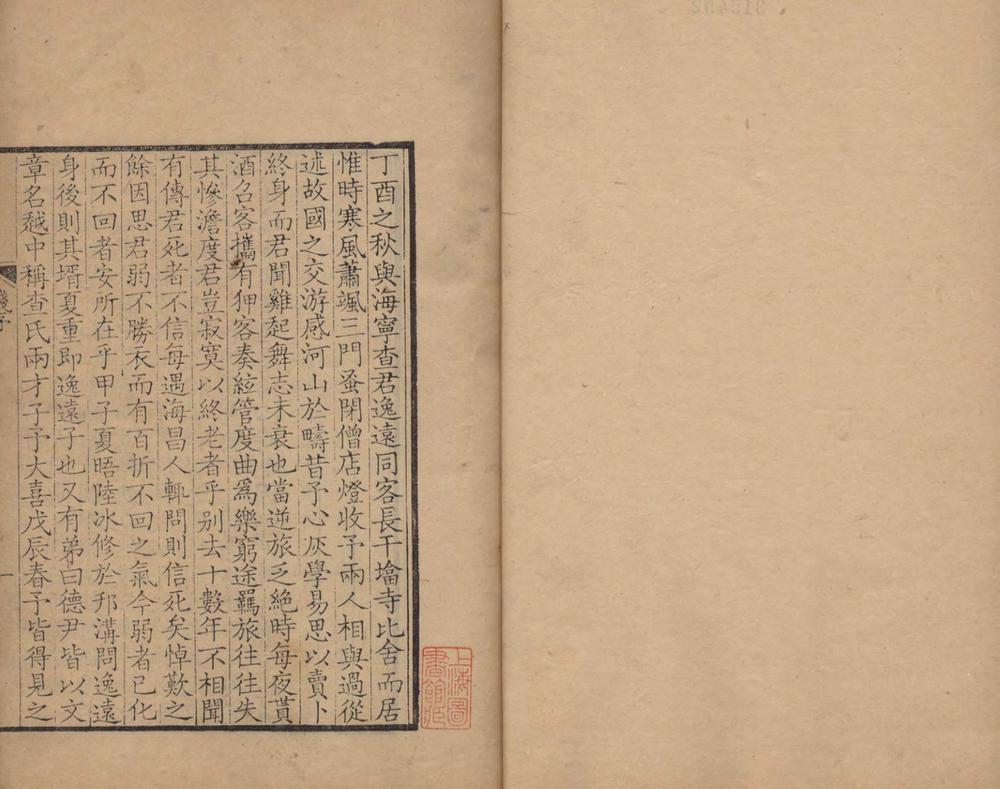 丁酉之秋與海寧查君逸遠同客長干墖寺比舍而居
惟時寒風蕭颯三門蚤閉僧店燈收予兩人相與過從
述故國之交游感河山於疇昔予心灰學易思以賣卜
終身而君聞雞起舞志未衰也當逆旅乏絕時每夜貰
酒召客攜有狎客奏絃管度曲為樂窮途羈旅往往失
其慘澹度君豈寂寞以終老者乎别去十數年不相聞
有傳君死者不信每遇海昌人輒問則信死矣悼歎之
餘因思君弱不勝衣而有百折不回之氣今弱者已化
而不回者安所在乎甲子夏晤陸冰修於邗溝問逸遠
身後則其壻夏重即逸遠子也又有弟曰德尹皆以文
章名越中稱查氏兩才子予大喜戊辰春予皆得見之
序
一
上海圖
書館藏